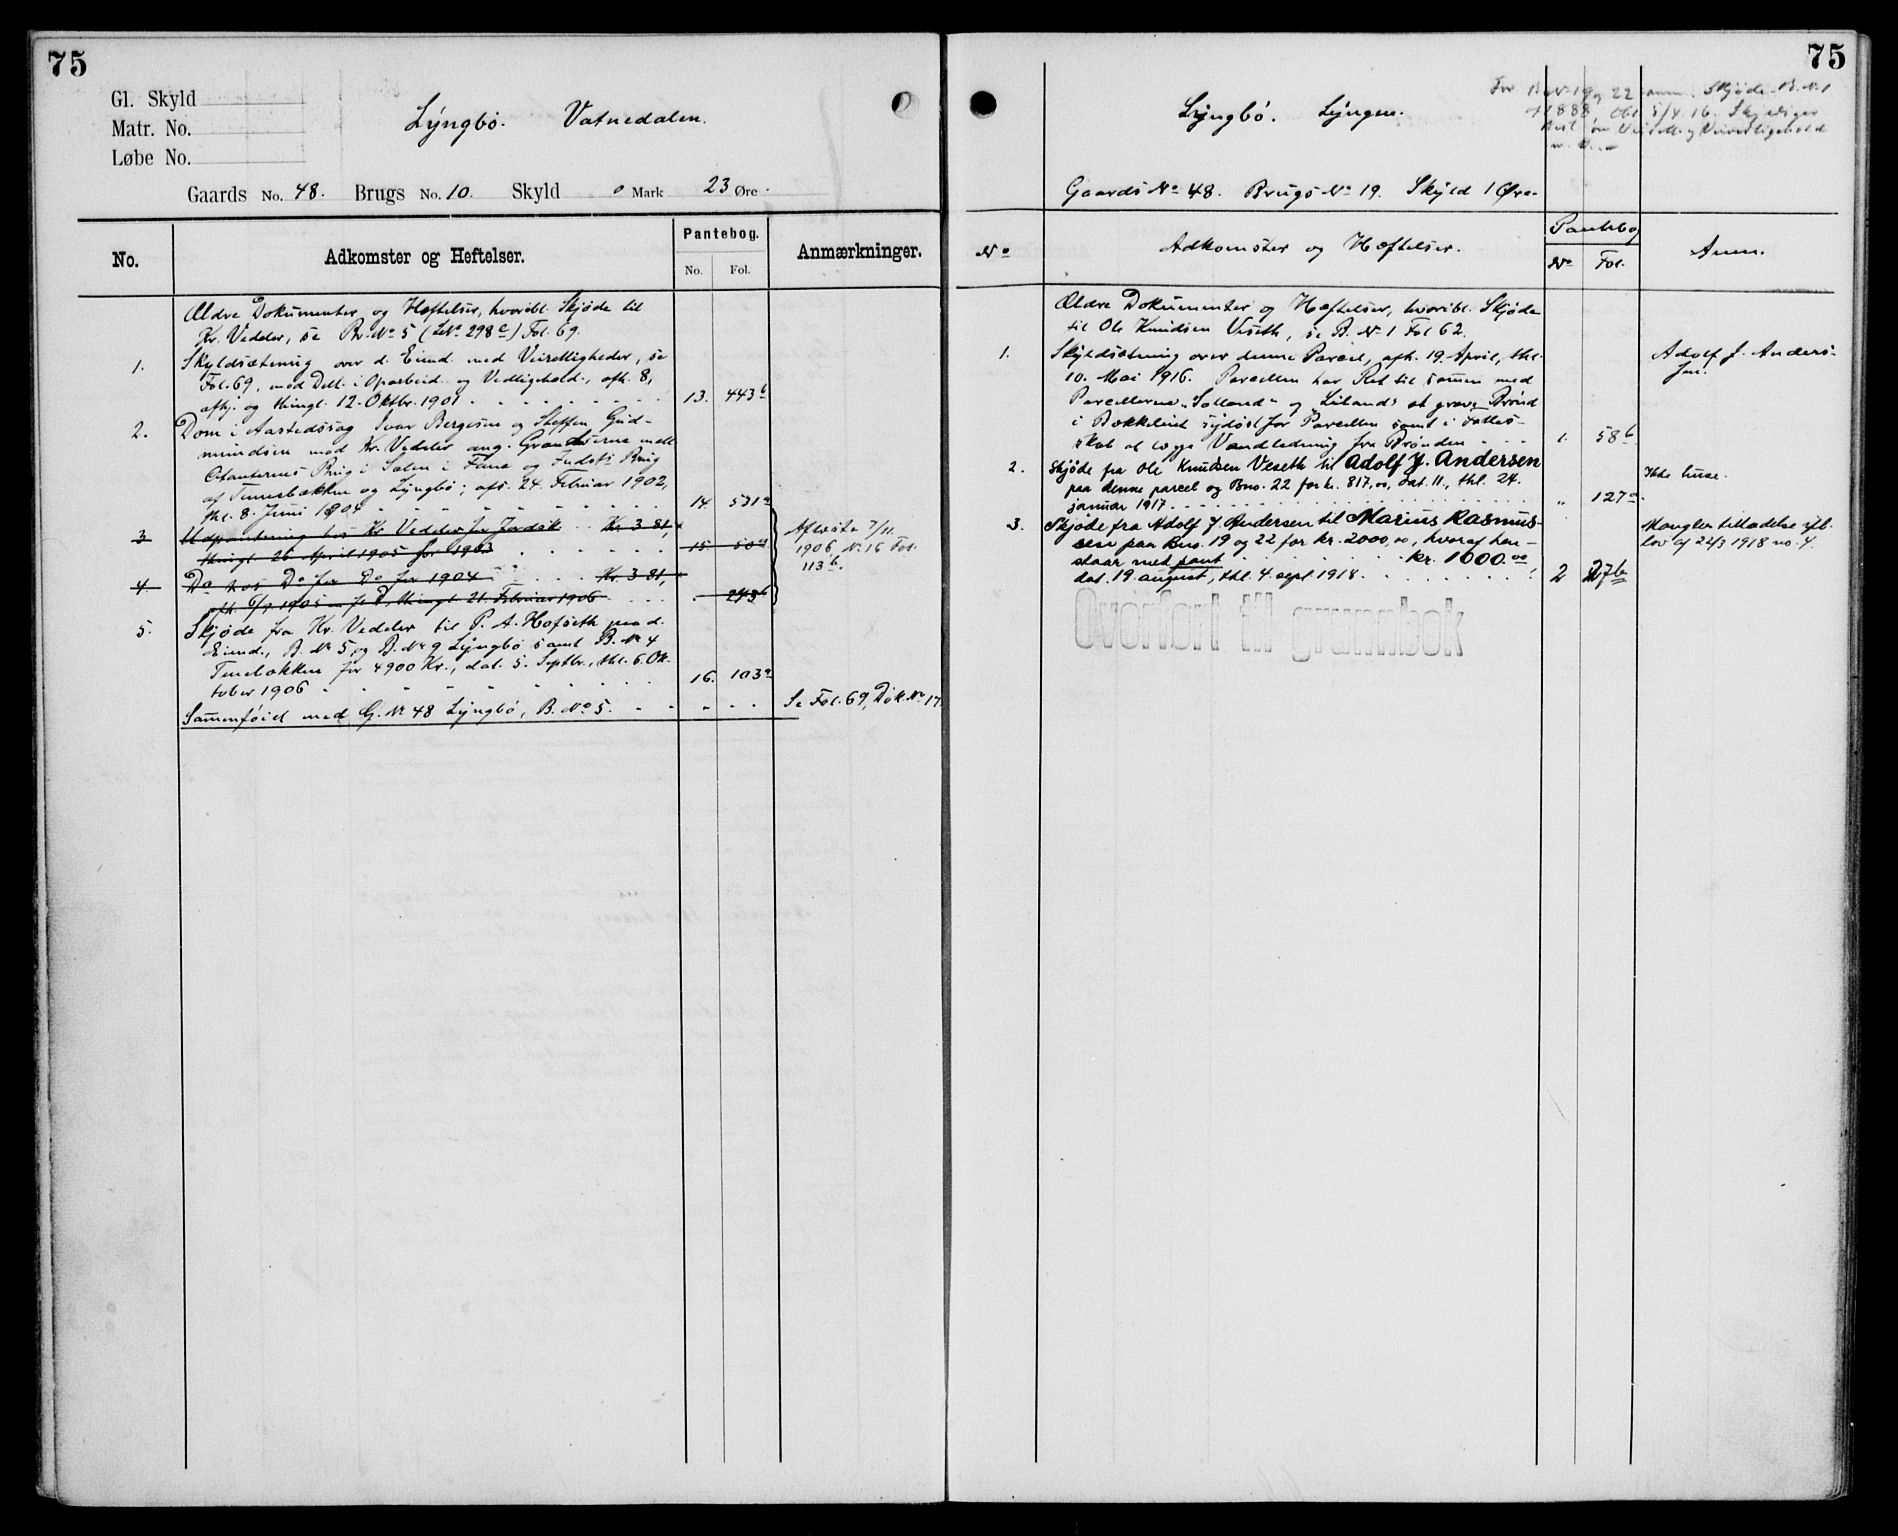 75
Gl. Skyld
Matr. No.
Løbe No.
Lyngbö. Vatnedalen.
Gaards No. 48. Brugs No. 10. Skyld 0 Mark 23 Øre.
No.
Adkomster og Heftelser.
Pantebog.
No. Fol.
Anmærkninger.
Ældre Dokumenter og Hæftelser, hvoribl. Skjøde til
Kr. Vedeler, se Br. No 5 (LNo. 298c) Fol. 69.
1. Skyldsætning over d. Eiend. med Veirettigheder, se
Fol. 69, med Delt. i Oparbeid. og Vedligehold., afh. 8,
afhj. og thingl. 12. Oktbr. 1901 13. 443b
2. Dom i Aastedssag Ivar Bergesen og Steffen Gud-
mundsen mod Kr. Vedeler ang. Grændserne mell.
Citanternes Brug i Sælen i Fane og Indst's Brug
af Tennebækken og Lyngbö; afs. 24. Februar 1902,
thl. 8. Juni 1904 14. 531a
3 Udpantning hos Kr. Vedeler for Jordsk. Kr. 3.81,
thingl. 26. April 1905 for 1903 15. 50a
4 Do hos Do for Do for 1904 Kr. 3.81,
afh. 6/9 1905 thingl. 21. Februar 1906 243b
Aflæste 7/11.
1906, No. 16 Fol.
113b.
5. Skjøde fra Kr. Vedeler til P. A. Hofseth paa d.
Eiend., B. No 5 og B. No 9 Lyngbö samt B. No 4
Tenebækken for 4900 Kr., dat. 5. Septbr., thl. 6. Ok-
tober 1906 16. 103a
Sammenföiet med G. No 48 Lyngbö, B. No 5. Se Fol. 69, Dok. No 17.
75
For B No 19 og 22 anm. Skjøde B. No 1
1888, Obl. 5/4. 16.
Lyngbö. Lyngen.
Gaards No 48. Brugs No 19. Skyld 1 Øre.
No
Adkomster og Hæftelser.
Pantebog
No Fol.
Anm.
Ældre Dokumenter og Hæftelser, hvoribl. Skjøde
til Ole Knudsen Veseth, se B. No 1 Fol 62.
1. Skyldsætning over denne Parcel, afh. 19. April, thl.
10. Mai 1916. Parcellen har Ret til sammen med
Parcellerne "Solland" og "Liland" at grave Brönd
i Bakkelivet sydöst for Parcellen samt i Fælles-
skab at lægge Vandledning fra Brönden 1. 58b
Adolf J. Anders-
sen.
2. Skjøde fra Ole Knudsen Veseth til Adolf J. Andersen
paa denne parcel og Bno. 22 for kr. 817,00, dat. 11., thl. 24.
januar 1917 " 127a
Ikke huse.
3. Skjøde fra Adolf J. Andersen til Marius Rasmus-
sen paa Bno. 19 og 22 for kr. 2000,00, hvoraf hen-
staar med pant kr. 1600.00,
dat. 19. august, thl. 4. sept. 1918. 2 27b
Mangler tilladelse efl.
lov af 22/3 1918 no. 4.
Overført til grunnbok